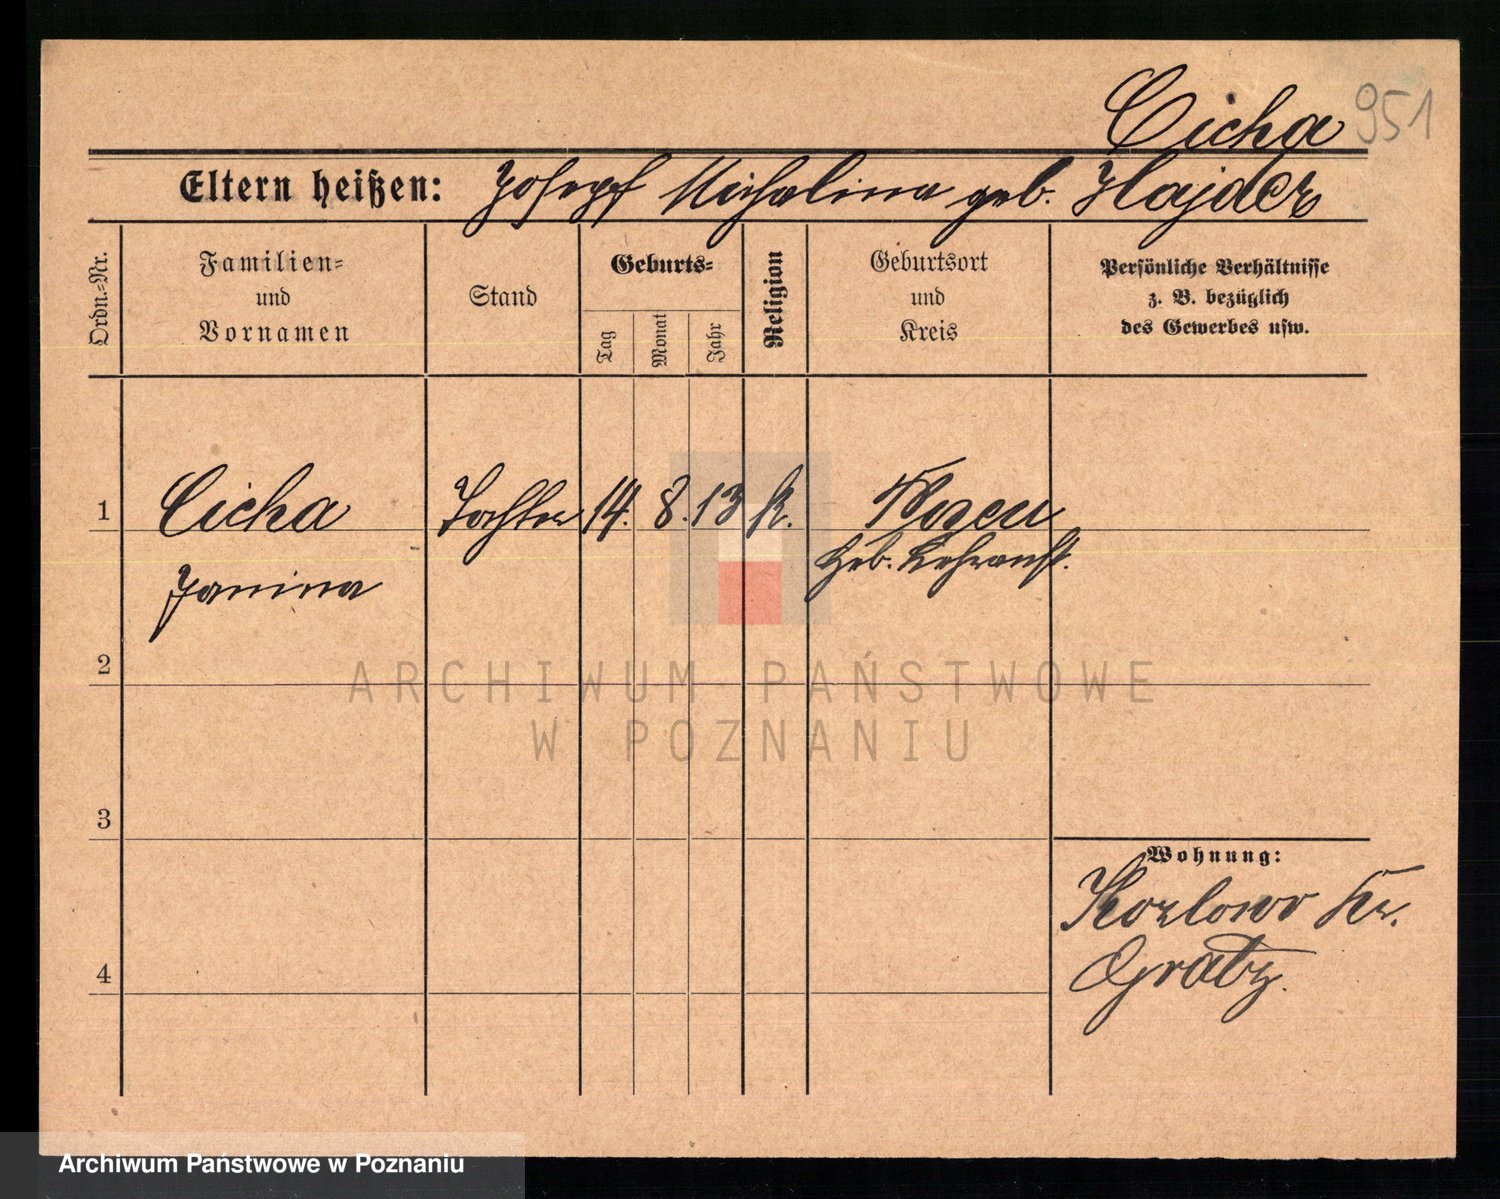 Cicha 951
Eltern heißen: Josepf Michalina geb. Hajder
Ordn.-Nr.
Familien-
und
Vornamen
Stand
Geburts-
Tag
Monat
Jahr
Religion
Geburtsort
und
Kreis
Persönliche Verhältnisse
z. B. bezüglich
des Gewerbes usw.
1 Cicha Tochter 14. 8. 13 k. Posen
Janina Heb. Lehranst.
2
3
4
Wohnung:
Kozlowo Kr.
Grätz.
ARCHIWUM PAŃSTWOWE
W POZNANIU
Archiwum Państwowe w Poznaniu